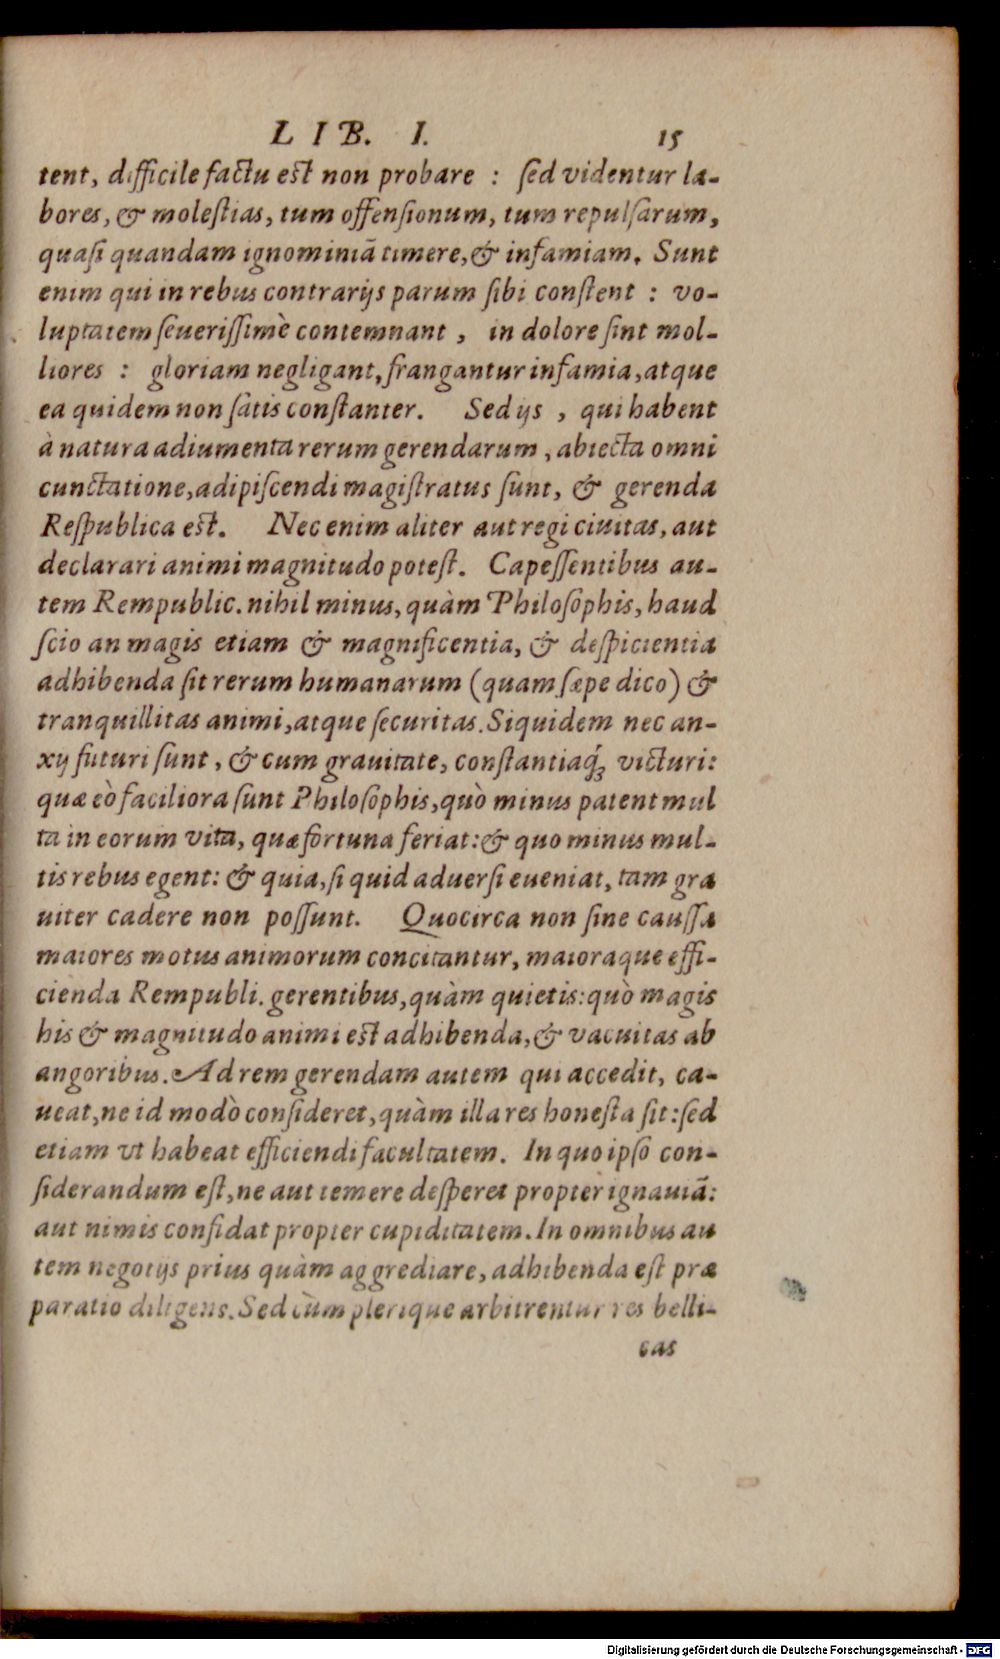 LIB. I. 15
tent, difficile factu est non probare : sed videntur la-
bores, & molestias, tum offensionum, tum repulsarum,
quasi quandam ignominiã timere, & infamiam. Sunt
enim qui in rebus contrarijs parum sibi constent : vo-
luptatem seuerissimè contemnant , in dolore sint mol-
liores : gloriam negligant, frangantur infamia, atque
ea quidem non satis constanter. Sed ijs , qui habent
à natura adiumenta rerum gerendarum , abiecta omni
cunctatione, adipiscendi magistratus sunt, & gerenda
Respublica est. Nec enim aliter aut regi ciuitas, aut
declarari animi magnitudo potest. Capessentibus au-
tem Rempublic. nihil minus, quàm Philosophis, haud
scio an magis etiam & magnificentia, & despicientia
adhibenda sit rerum humanarum (quam sæpe dico) &
tranquillitas animi, atque securitas. Siquidem nec an-
xij futuri sunt , & cum grauitate, constantiaq́ꝫ victuri:
quæ eò faciliora sunt Philosophis, quò minus patent mul
ta in eorum vita, quæ fortuna feriat: & quo minus mul-
tis rebus egent: & quia, si quid aduersi eueniat, tam gra
uiter cadere non possunt. Quocirca non sine caussa
maiores motus animorum concitantur, maioraque effi-
cienda Rempubli. gerentibus, quàm quietis: quò magis
his & magnitudo animi est adhibenda, & vacuitas ab
angoribus. Ad rem gerendam autem qui accedit, ca-
ueat, ne id modò consideret, quàm illa res honesta sit: sed
etiam vt habeat efficiendi facultatem. In quo ipso con-
siderandum est, ne aut temere desperet propter ignauiã:
aut nimis confidat propter cupiditatem. In omnibus au
tem negotijs prius quàm aggrediare, adhibenda est præ
paratio diligens. Sed cùm plerique arbitrentur res belli-
cas
Digitalisierung gefördert durch die Deutsche Forschungsgemeinschaft - DFG